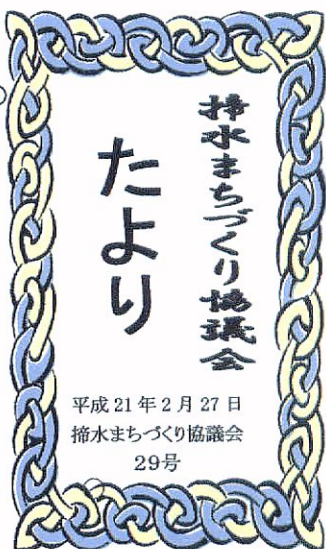 揥水まちづくり協議会
たより
平成21年2月27日
揥水まちづくり協議会
29号